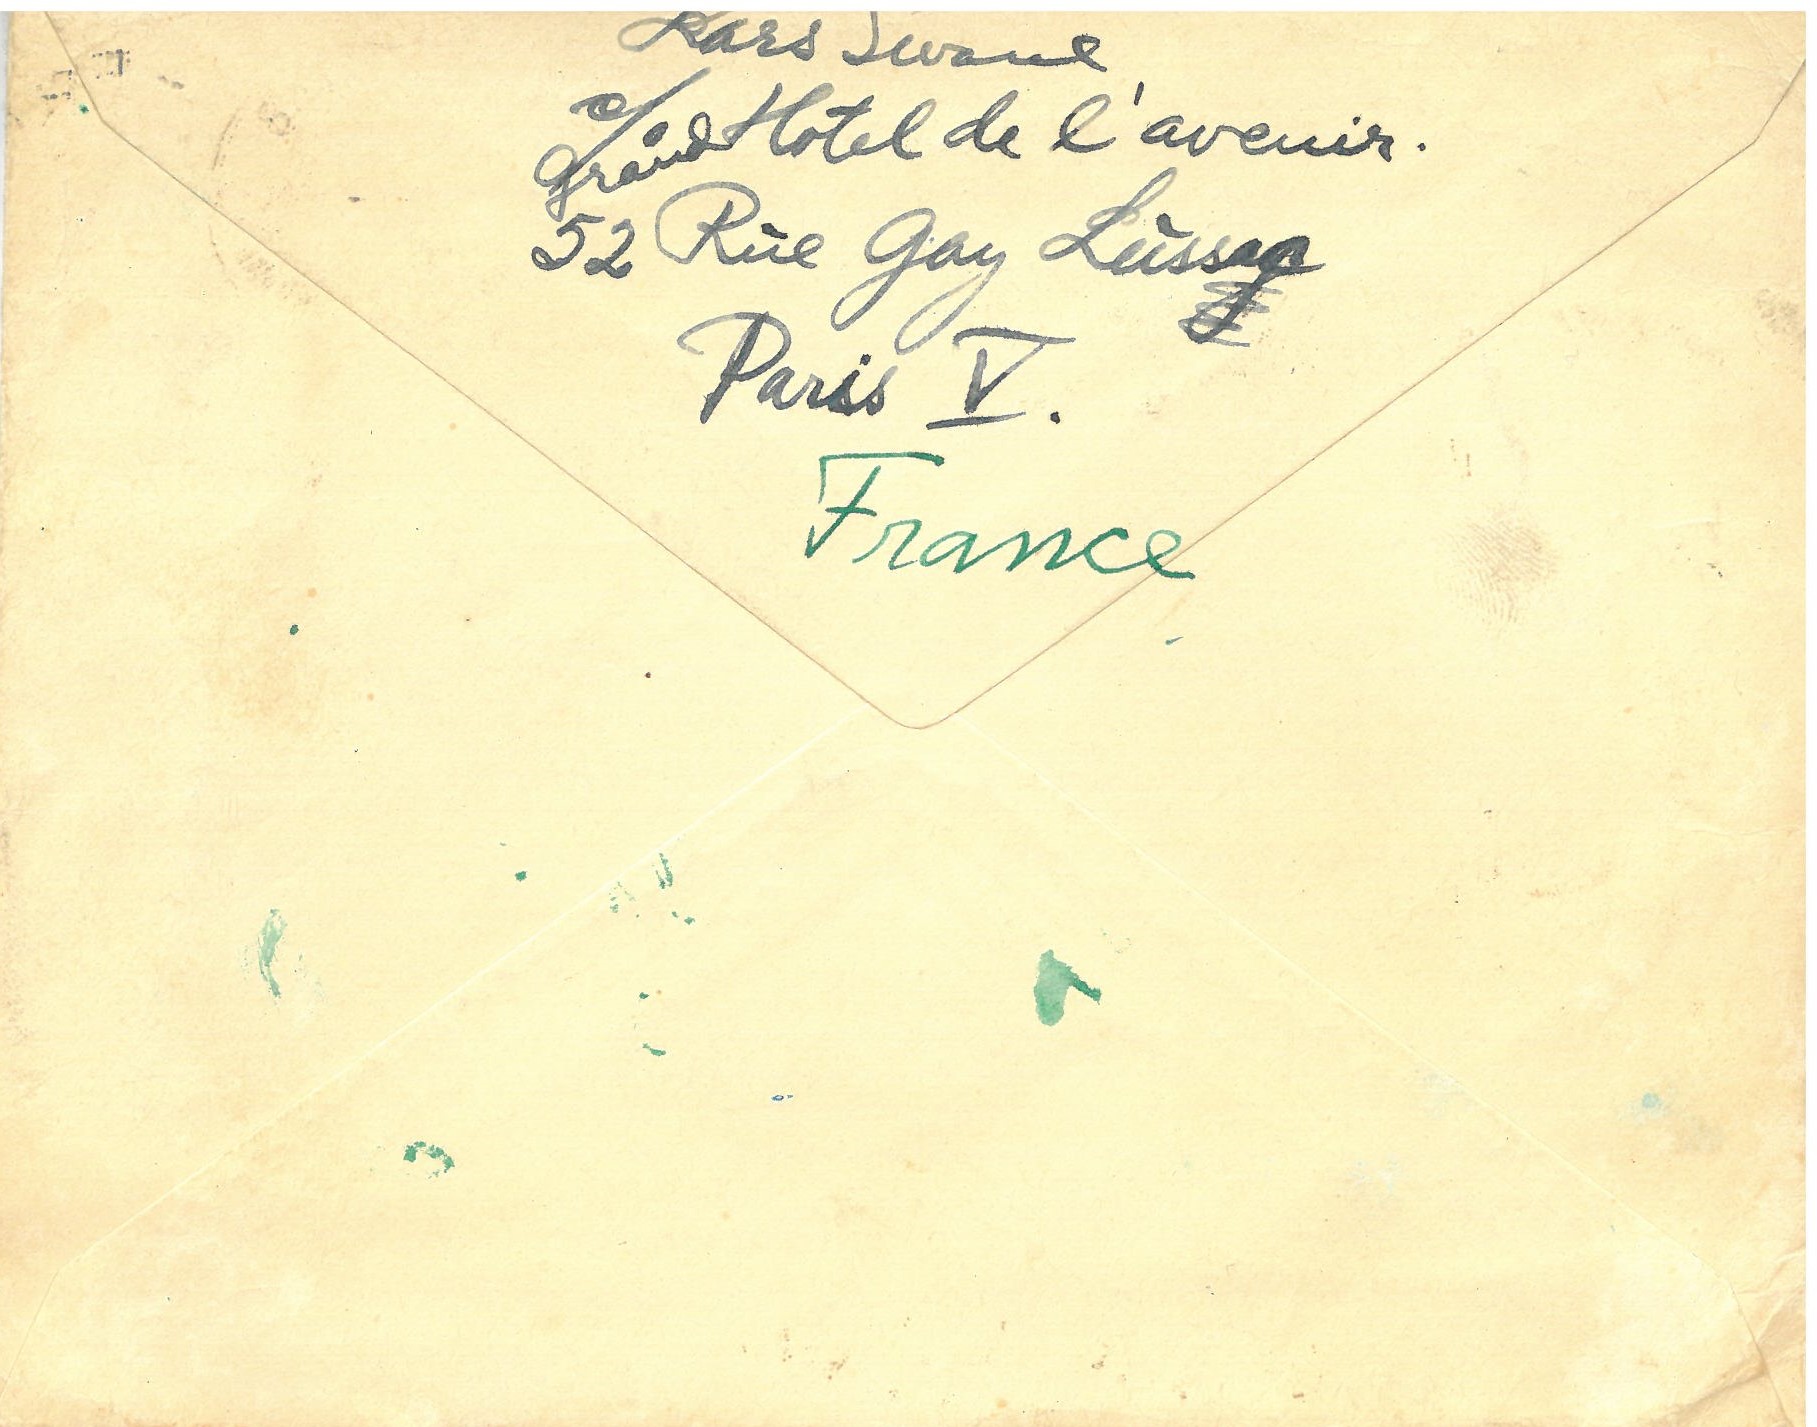 Lars Swane
c/o
Grand Hotel de l'avenir.
52 Rue Gay Lussag
Paris V.
France